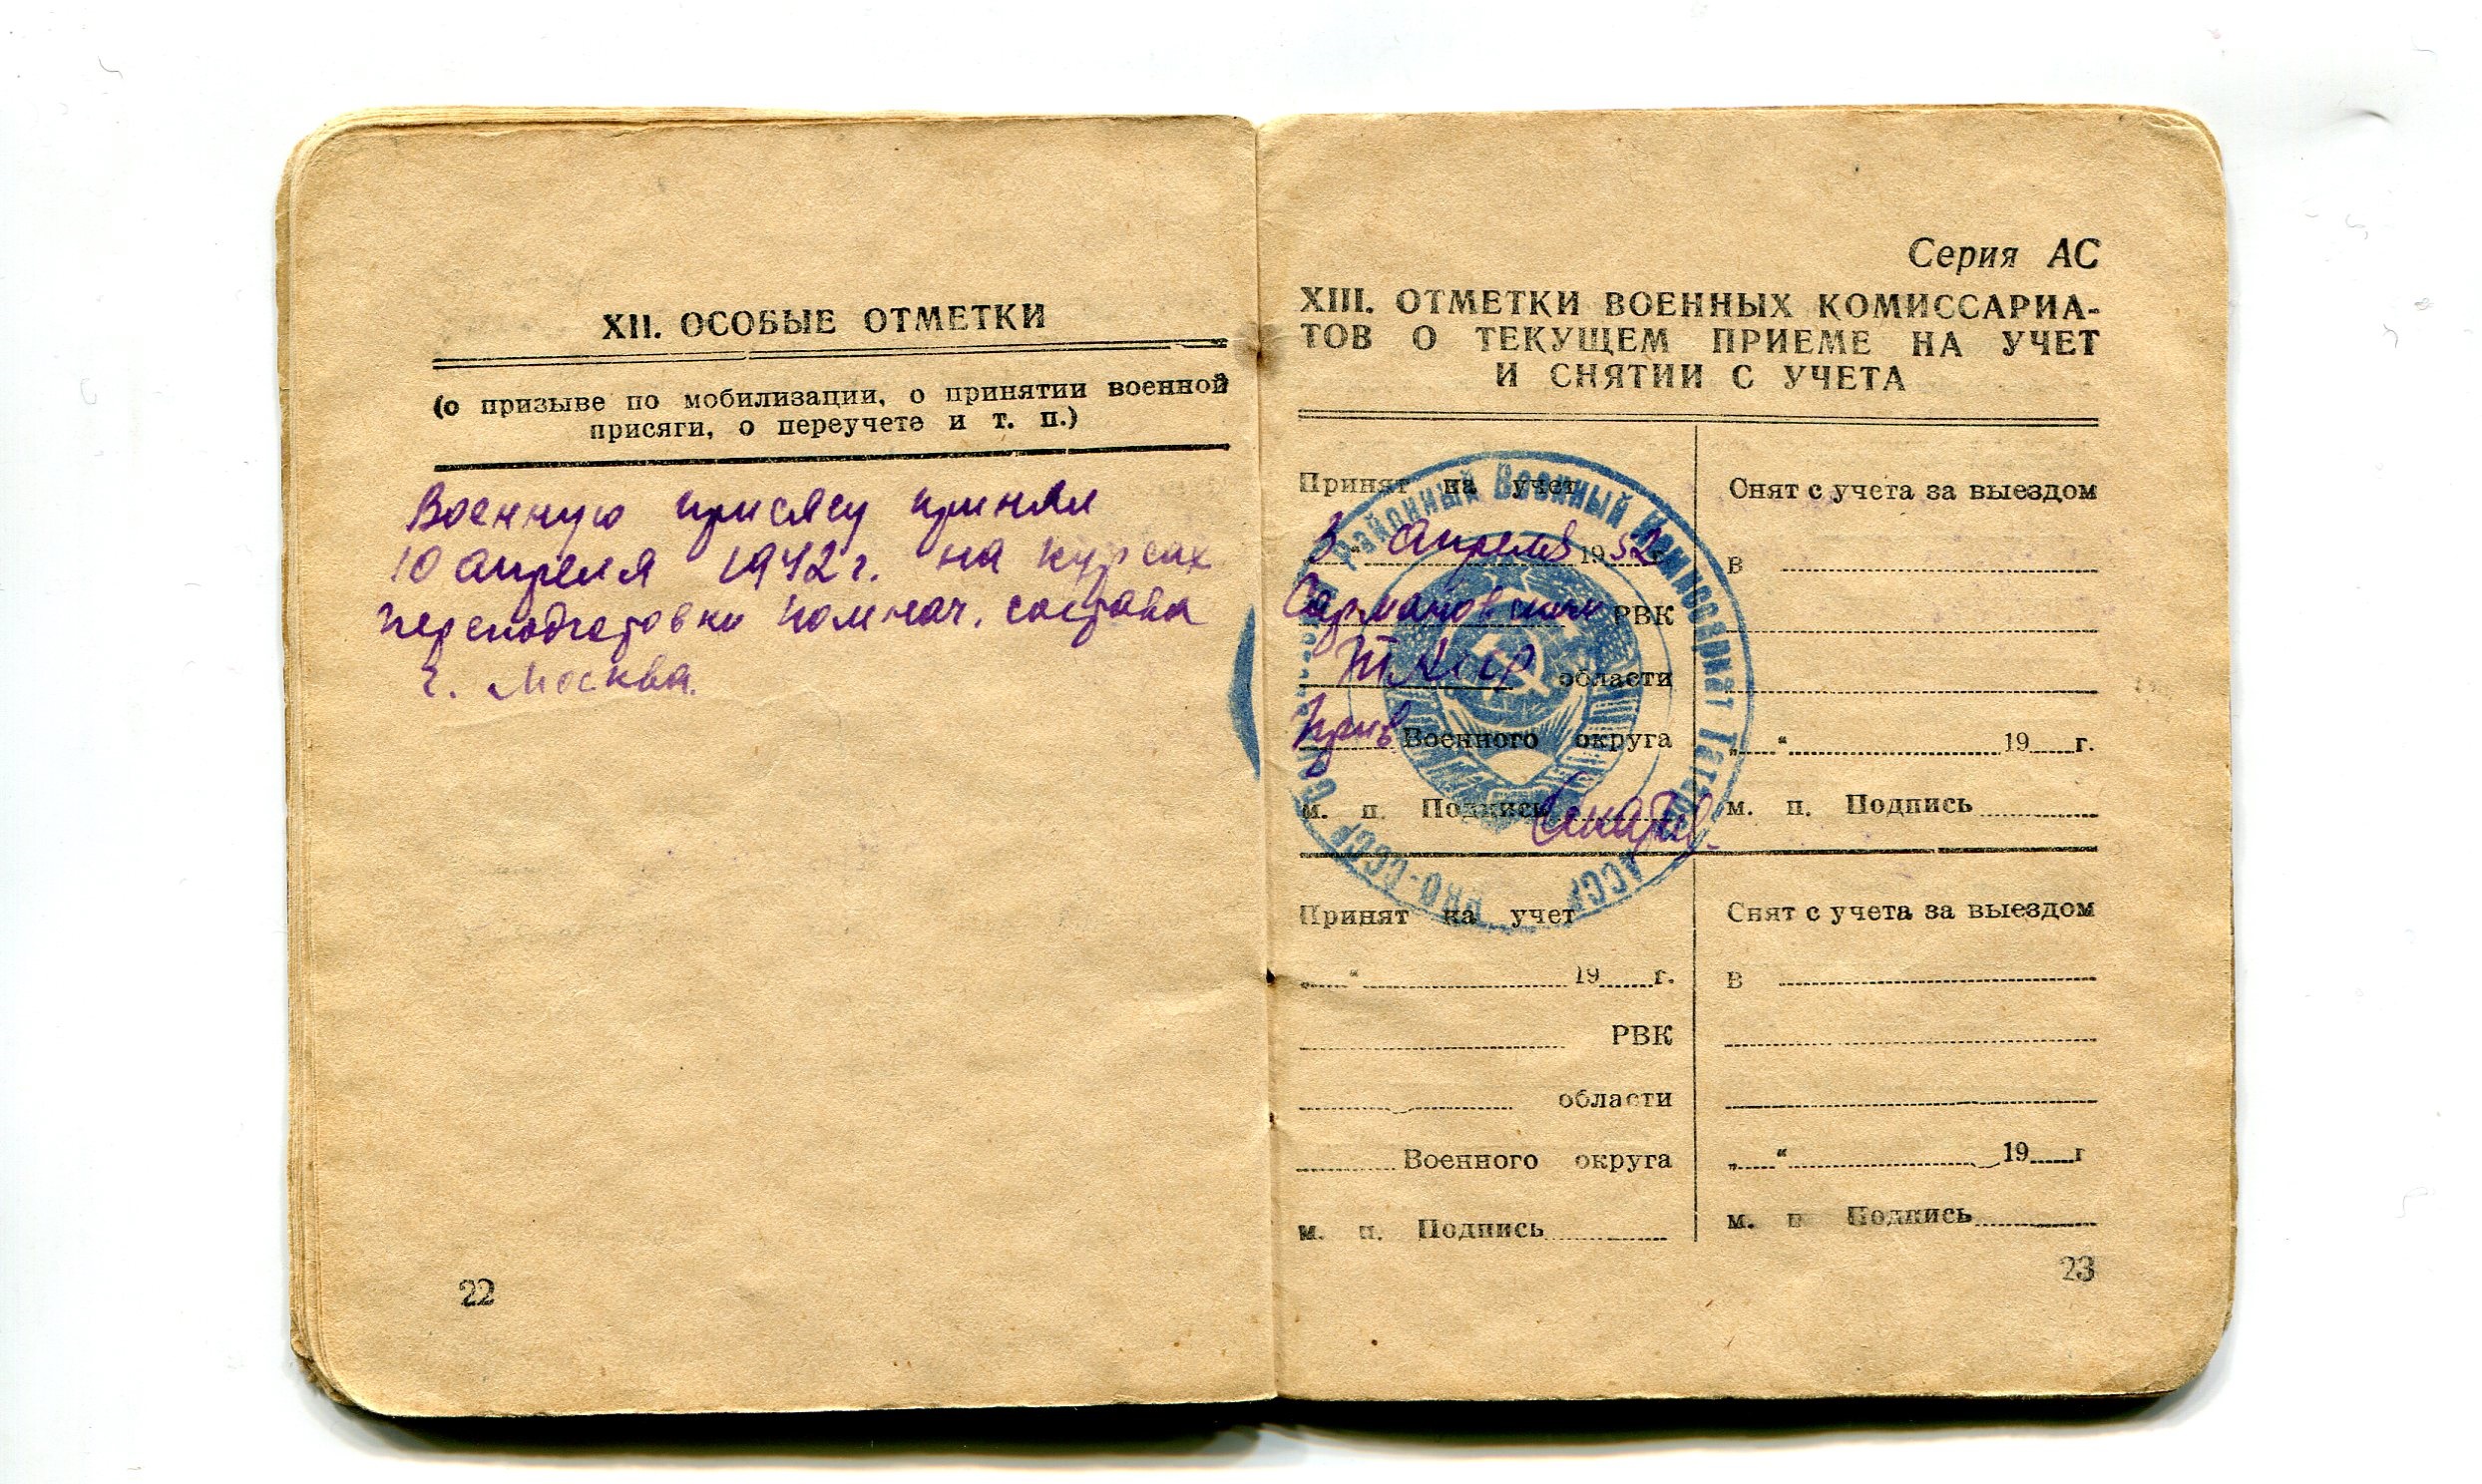 XII. ОСОБЫЕ ОТМЕТКИ
(о призыве по мобилизации, о принятии военной
присяги, о переучете и т. п.)
Военную присягу принял
10 апреля 1942 г. на курсах
переподготовки полнач. состава
г. Москва.
22
Серия АС
XIII. ОТМЕТКИ ВОЕННЫХ КОМИССАРИА-
ТОВ О ТЕКУЩЕМ ПРИЕМЕ НА УЧЕТ
И СНЯТИИ С УЧЕТА
Принят на учет
3 " апреля 1952 г.
Сармановским РВК
ТАССР области
Прив Военного округа
м. п. Подпись
Районный Военный Комиссариат
АССР
НКО-СССР
Снят с учета за выездом
в
„ “ 19 г.
м. п. Подпись
Принят на учет
„ “ 19 г.
РВК
области
Военного округа
м. п. Подпись
Снят с учета за выездом
в
„ “ 19 г
м. п Подпись
23